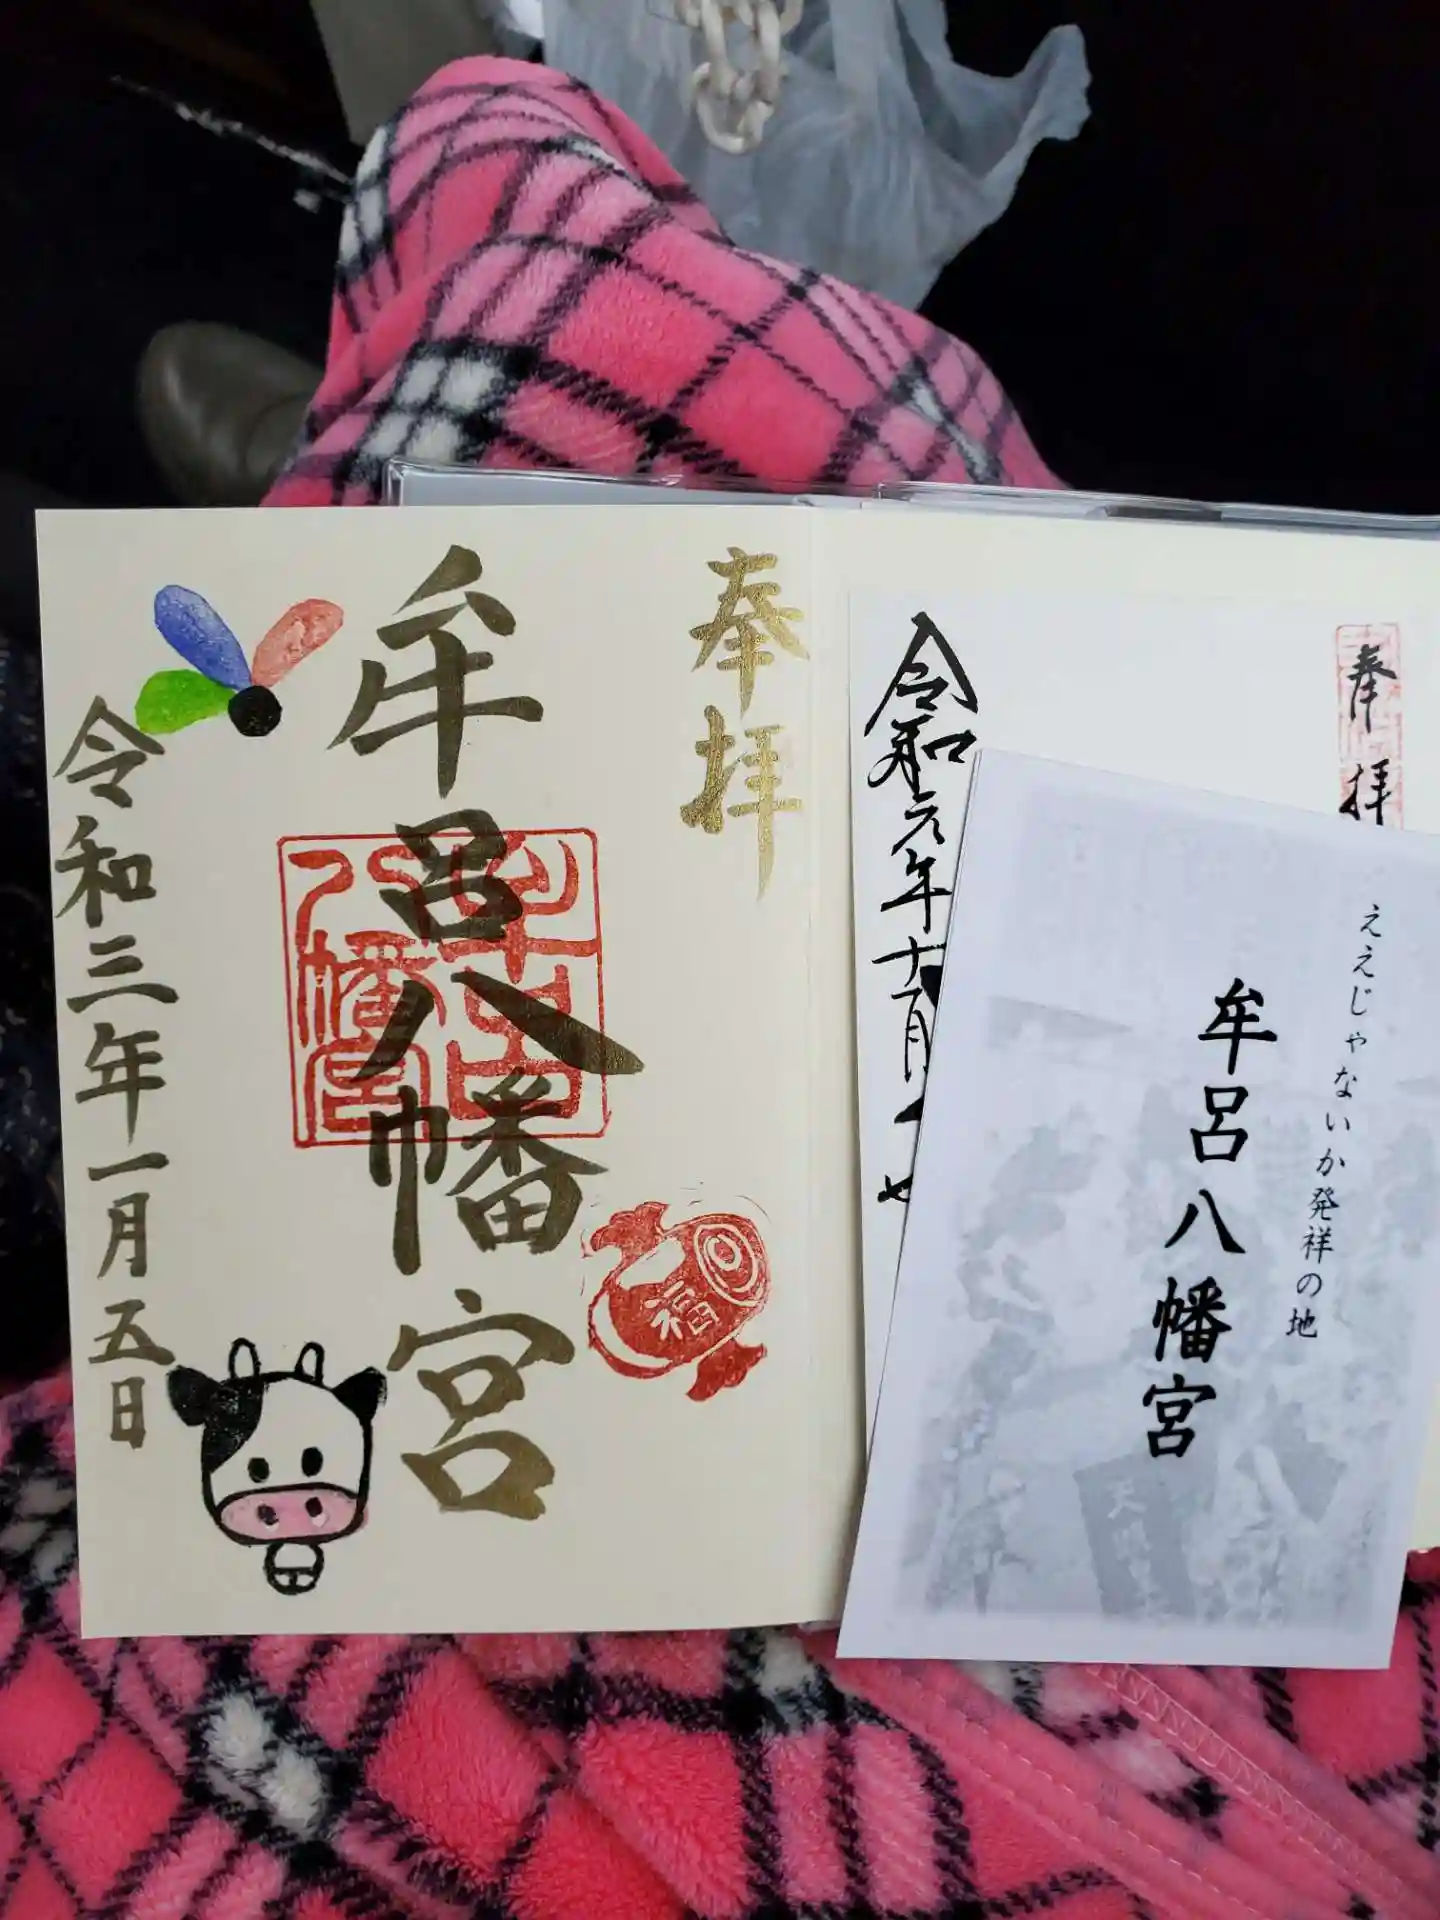 奉拝
牟呂八幡宮
令和三年一月五日
福
牟呂
八幡宮
奉拝
令和元年十一月
ええじゃないか発祥の地
牟呂八幡宮